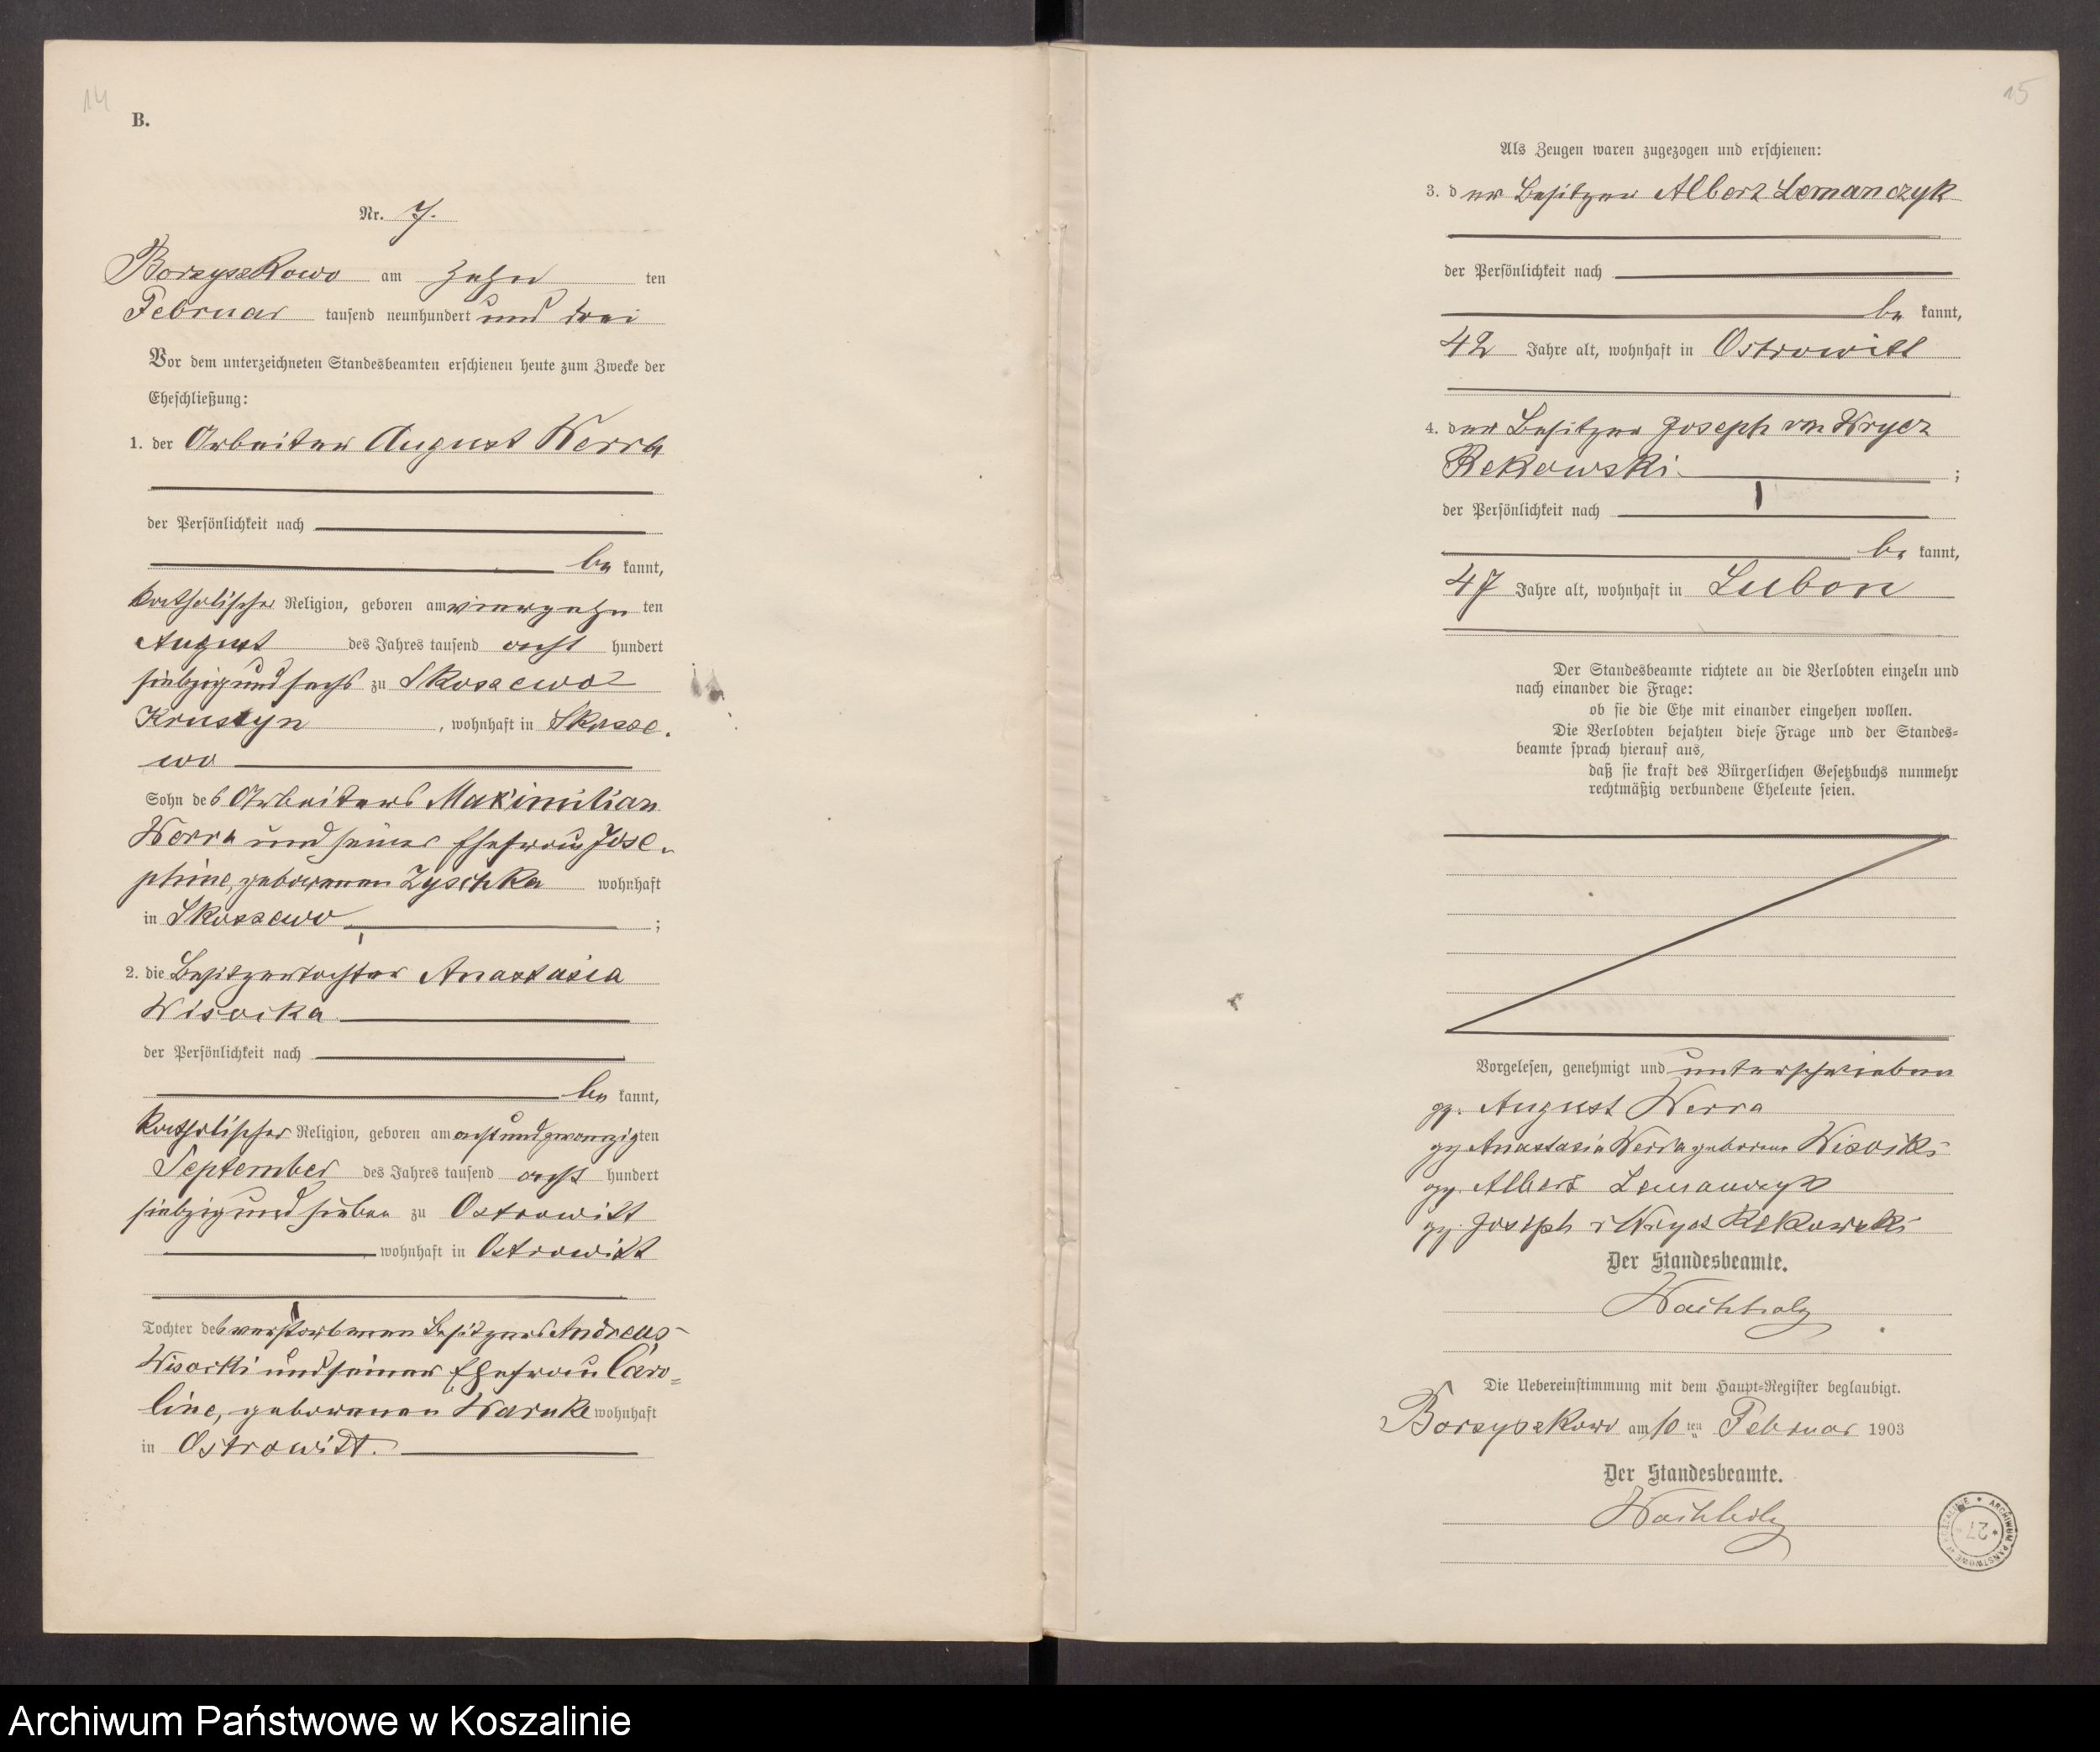 14
B.
Nr. 7.
Borzyszkowo am zehn ten
Februar tausend neunhundert und drei
Vor dem unterzeichneten Standesbeamten erschienen heute zum Zwecke der
Eheschließung:
1. der Arbeiter August Werra
der Persönlichkeit nach
be kannt,
katholischer Religion, geboren am vierzehn ten
August des Jahres tausend acht hundert
siebzig und sechs zu Skoszewo
Krustyn, wohnhaft in Skosze-
wo
Sohn des Arbeiters Maximilian
Werra und seiner Ehefrau Jose-
phine, geborenen Zyschka wohnhaft
in Skoszewo ;
2. die Besitzertochter Anastasia
Wisocka
der Persönlichkeit nach
be kannt,
katholischer Religion, geboren am acht und zwanzig ten
September des Jahres tausend acht hundert
siebzig und sieben zu Ostrowitt
wohnhaft in Ostrowitt
Tochter des verstorbenen Besitzers Andreas
Wisocki und seiner Ehefrau Caro=
line, geborenen Warnke wohnhaft
in Ostrowitt.
15
Als Zeugen waren zugezogen und erschienen:
3. der Besitzer Albert Lemanczyk
der Persönlichkeit nach
be kannt,
42 Jahre alt, wohnhaft in Ostrowitt
4. der Besitzer Joseph von Wrycz
Rekowski ;
der Persönlichkeit nach
be kannt,
47 Jahre alt, wohnhaft in Lubon
Der Standesbeamte richtete an die Verlobten einzeln und
nach einander die Frage:
ob sie die Ehe mit einander eingehen wollen.
Die Verlobten bejahten diese Frage und der Standes=
beamte sprach hierauf aus,
daß sie kraft des Bürgerlichen Gesetzbuchs nunmehr
rechtmäßig verbundene Eheleute seien.
Vorgelesen, genehmigt und unterschrieben
gz. August Werra
gz. Anastasia Werra geborene Wisocki
gz. Albert Lemanczyk
gz. Joseph v Wrycz Rekowski
Der Standesbeamte.
Wachholz
Die Uebereinstimmung mit dem Haupt=Register beglaubigt.
Borzyszkowo am 10 ten Februar 1903
Der Standesbeamte.
Wachholz
ARCHIWUM PAŃSTWOWE W KOSZALINIE
27
Archiwum Państwowe w Koszalinie